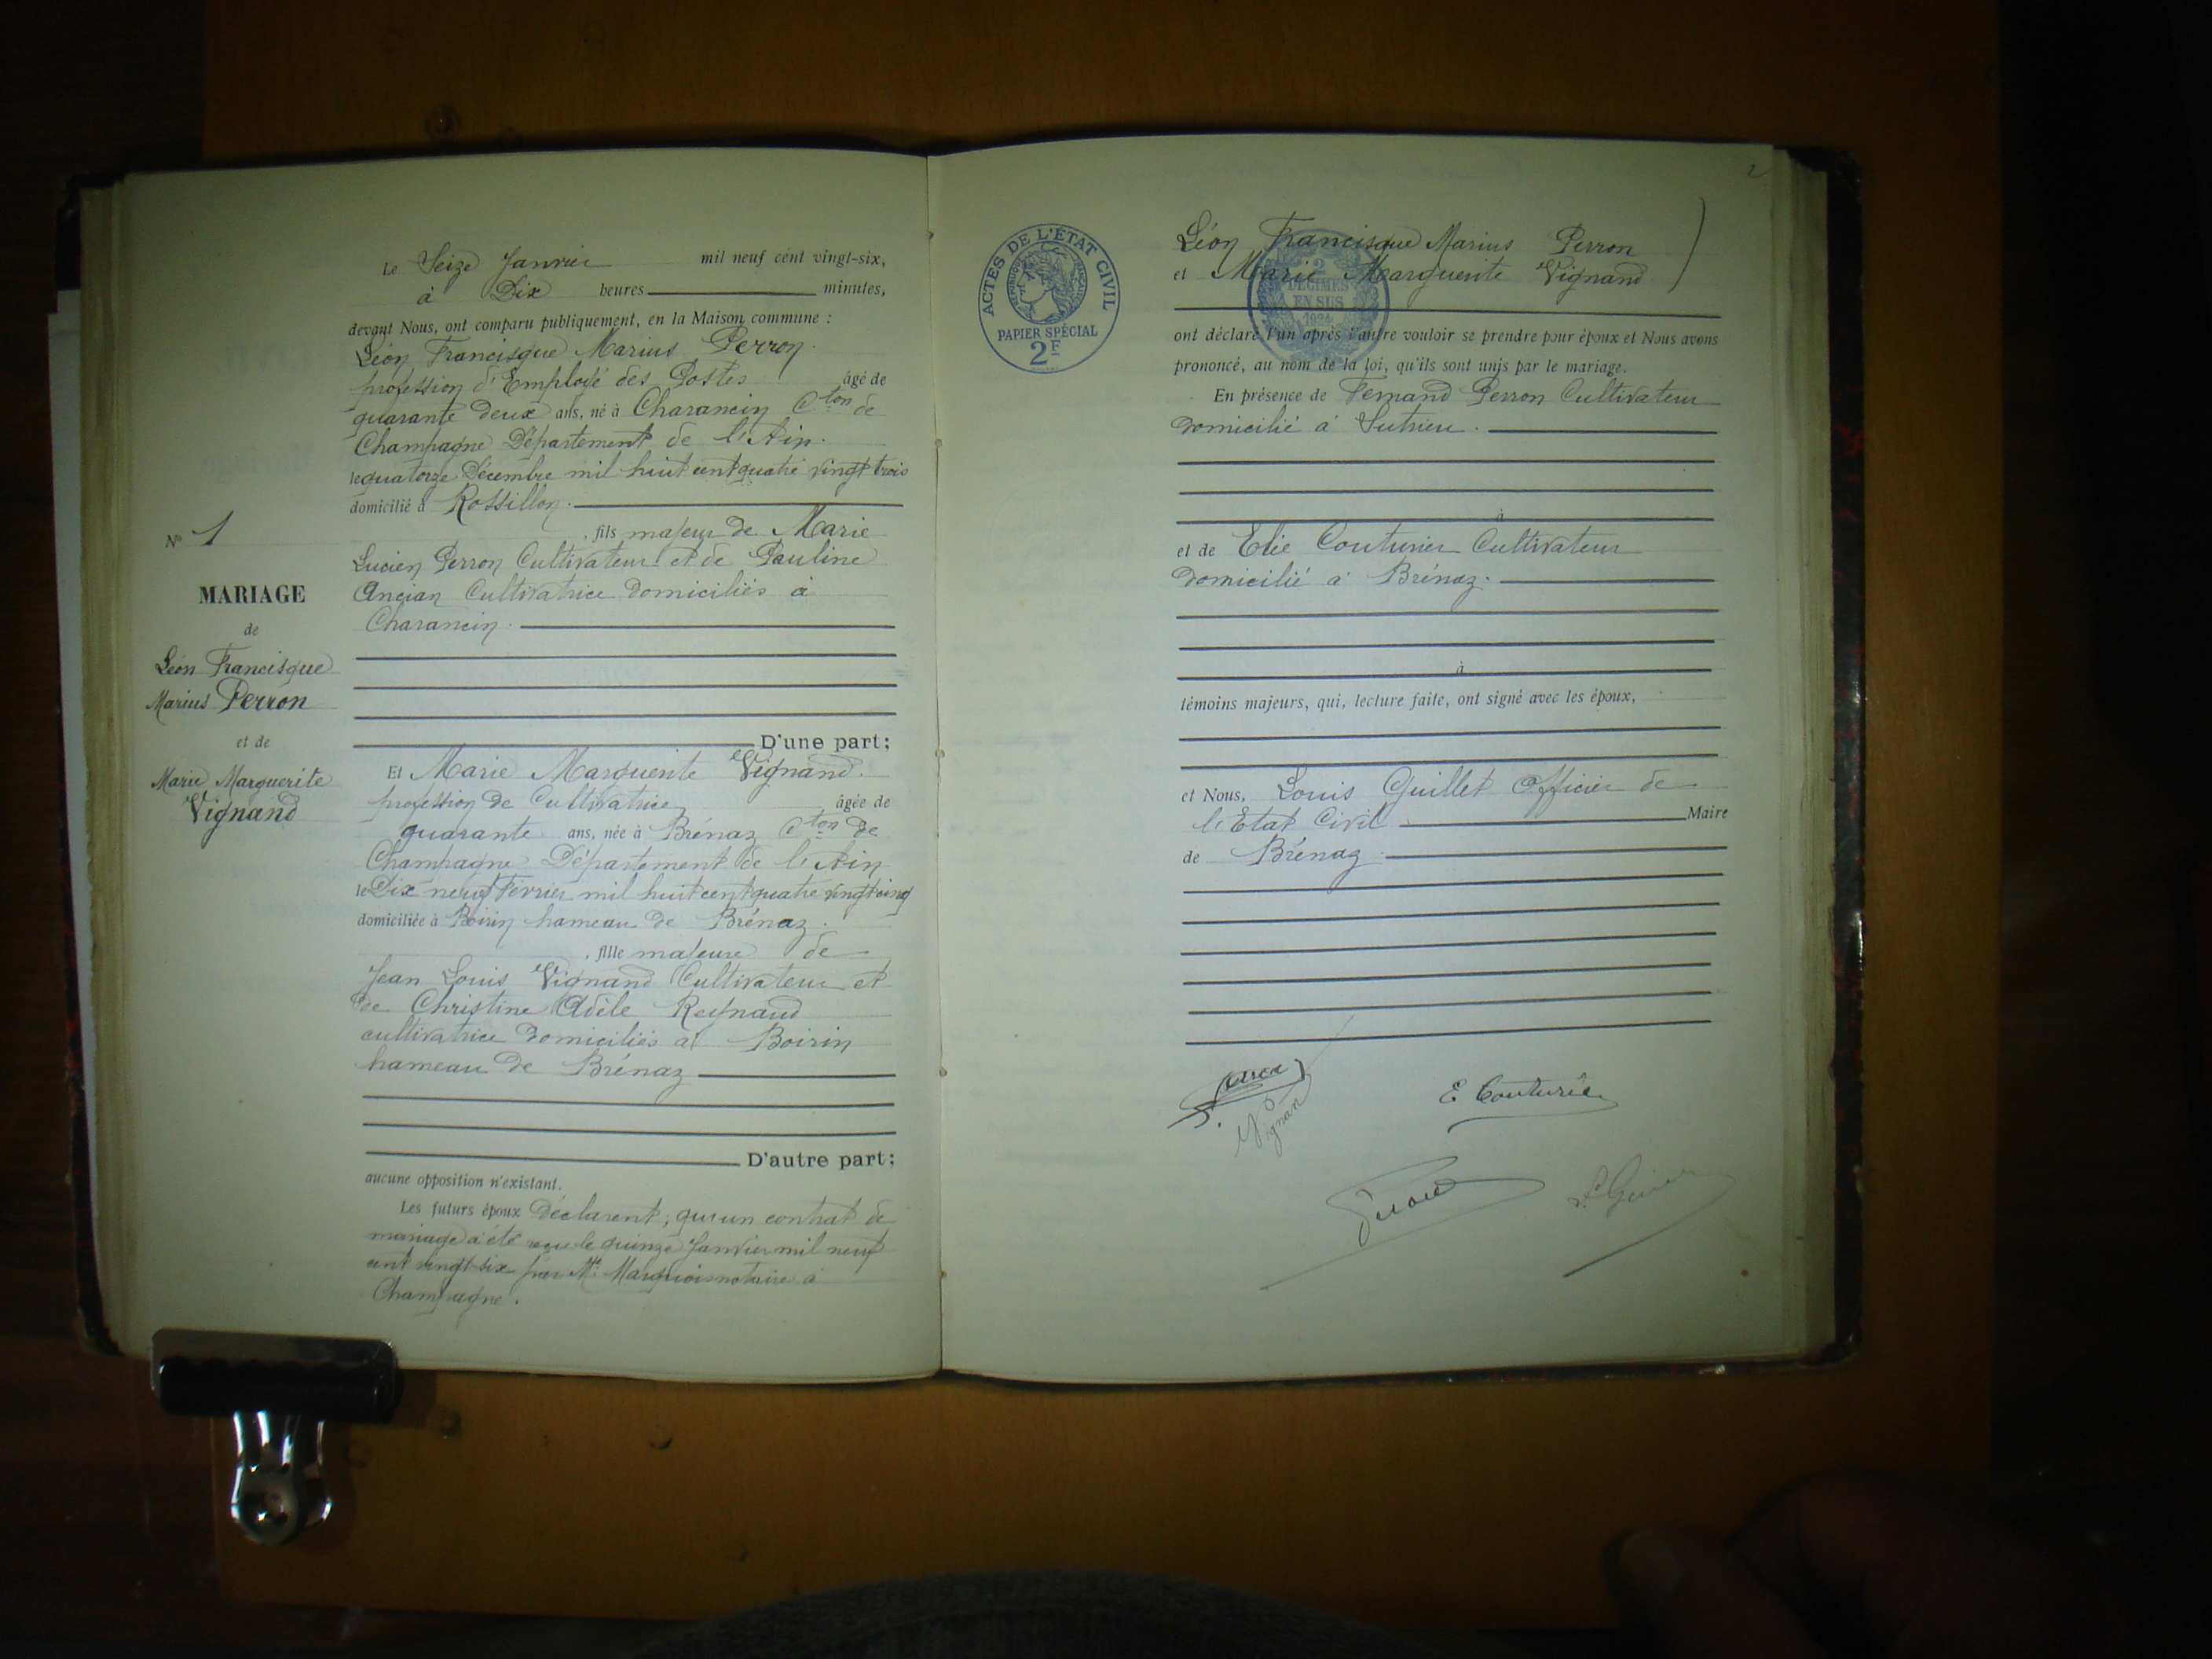 Le Seize Janvier mil neuf cent vingt-six,
à Dix heures minutes,
devant Nous, ont comparu publiquement, en la Maison commune :
Léon Francisque Marius Perron.
profession d'Employé des Postes âgé de
quarante deux ans, né à Charancin Cton de
Champagne Département de l'Ain.
le quatorze Décembre mil huit cent quatre vingt trois
domicilié à Rossillon.
, fils majeur de Marie
Lucien Perron Cultivateur et de Pauline
Ancian Cultivatrice domiciliés à
Charancin.
D'une part;
N° 1
MARIAGE
de
Léon Francisque
Marius Perron
et de
Marie Marguerite
Vignand
Et Marie Marguerite Vignand.
profession de Cultivatrice âgée de
quarante ans, née à Brénaz Cton de
Champagne Département de l'Ain
le Dix neuf Février mil huit cent quatre vingt cinq
domiciliée à Boirin hameau de Brénaz.
, fille majeure de
Jean Louis Vignand Cultivateur et
de Christine Adèle Reynaud
cultivatrice domiciliés à Boirin
hameau de Brénaz
D'autre part;
aucune opposition n'existant.
Les futurs époux déclarent, qu'un contrat de
mariage a été reçu le quinze Janvier mil neuf
cent vingt-six par Me notaire à
Champagne.
2
ACTES DE L'ÉTAT CIVIL
RÉPUBLIQUE FRANÇAISE
PAPIER SPÉCIAL
2F
2
DÉCIMES
EN SUS
1924
Léon Francisque Marius Perron
et Marie Marguerite Vignand
ont déclaré l'un après l'autre vouloir se prendre pour époux et Nous avons
prononcé, au nom de la loi, qu'ils sont unis par le mariage.
En présence de Fernand Perron Cultivateur
domicilié à Sutrieu.
à
et de Elie Couturier Cultivateur
domicilié à Brénaz.
à
témoins majeurs, qui, lecture faite, ont signé avec les époux,
et Nous, Louis Guillet Officier de
l'Etat Civil Maire
de Brénaz
Vignan
E Couturie